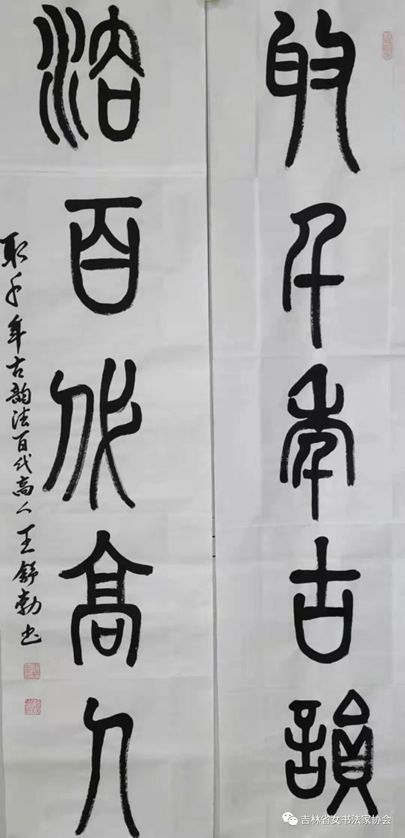 取千年古韻
法百代高人
取千年古韵法百代高人 王舒勃书
吉林省女书法家协会